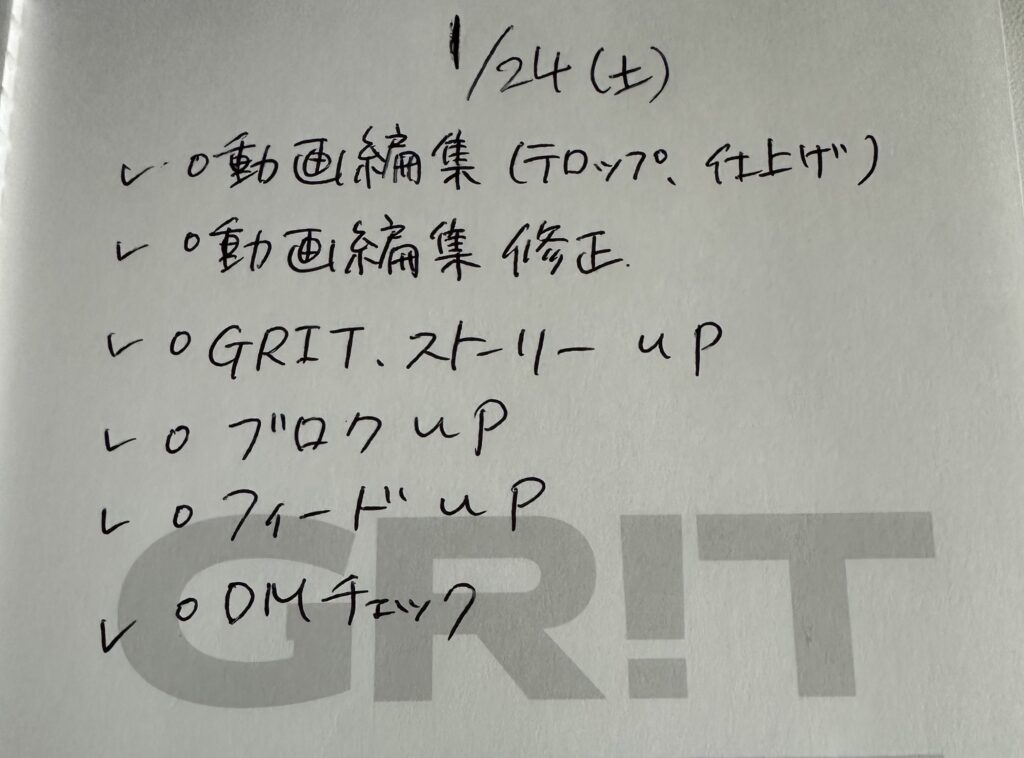 1/24(土)
✓ ○動画編集(テロップ、仕上げ)
✓ ○動画編集 修正.
✓ ○GRIT.ストーリー uP
✓ ○ブロク uP
✓ ○フィード uP
✓ ○DMチェック
GR!T